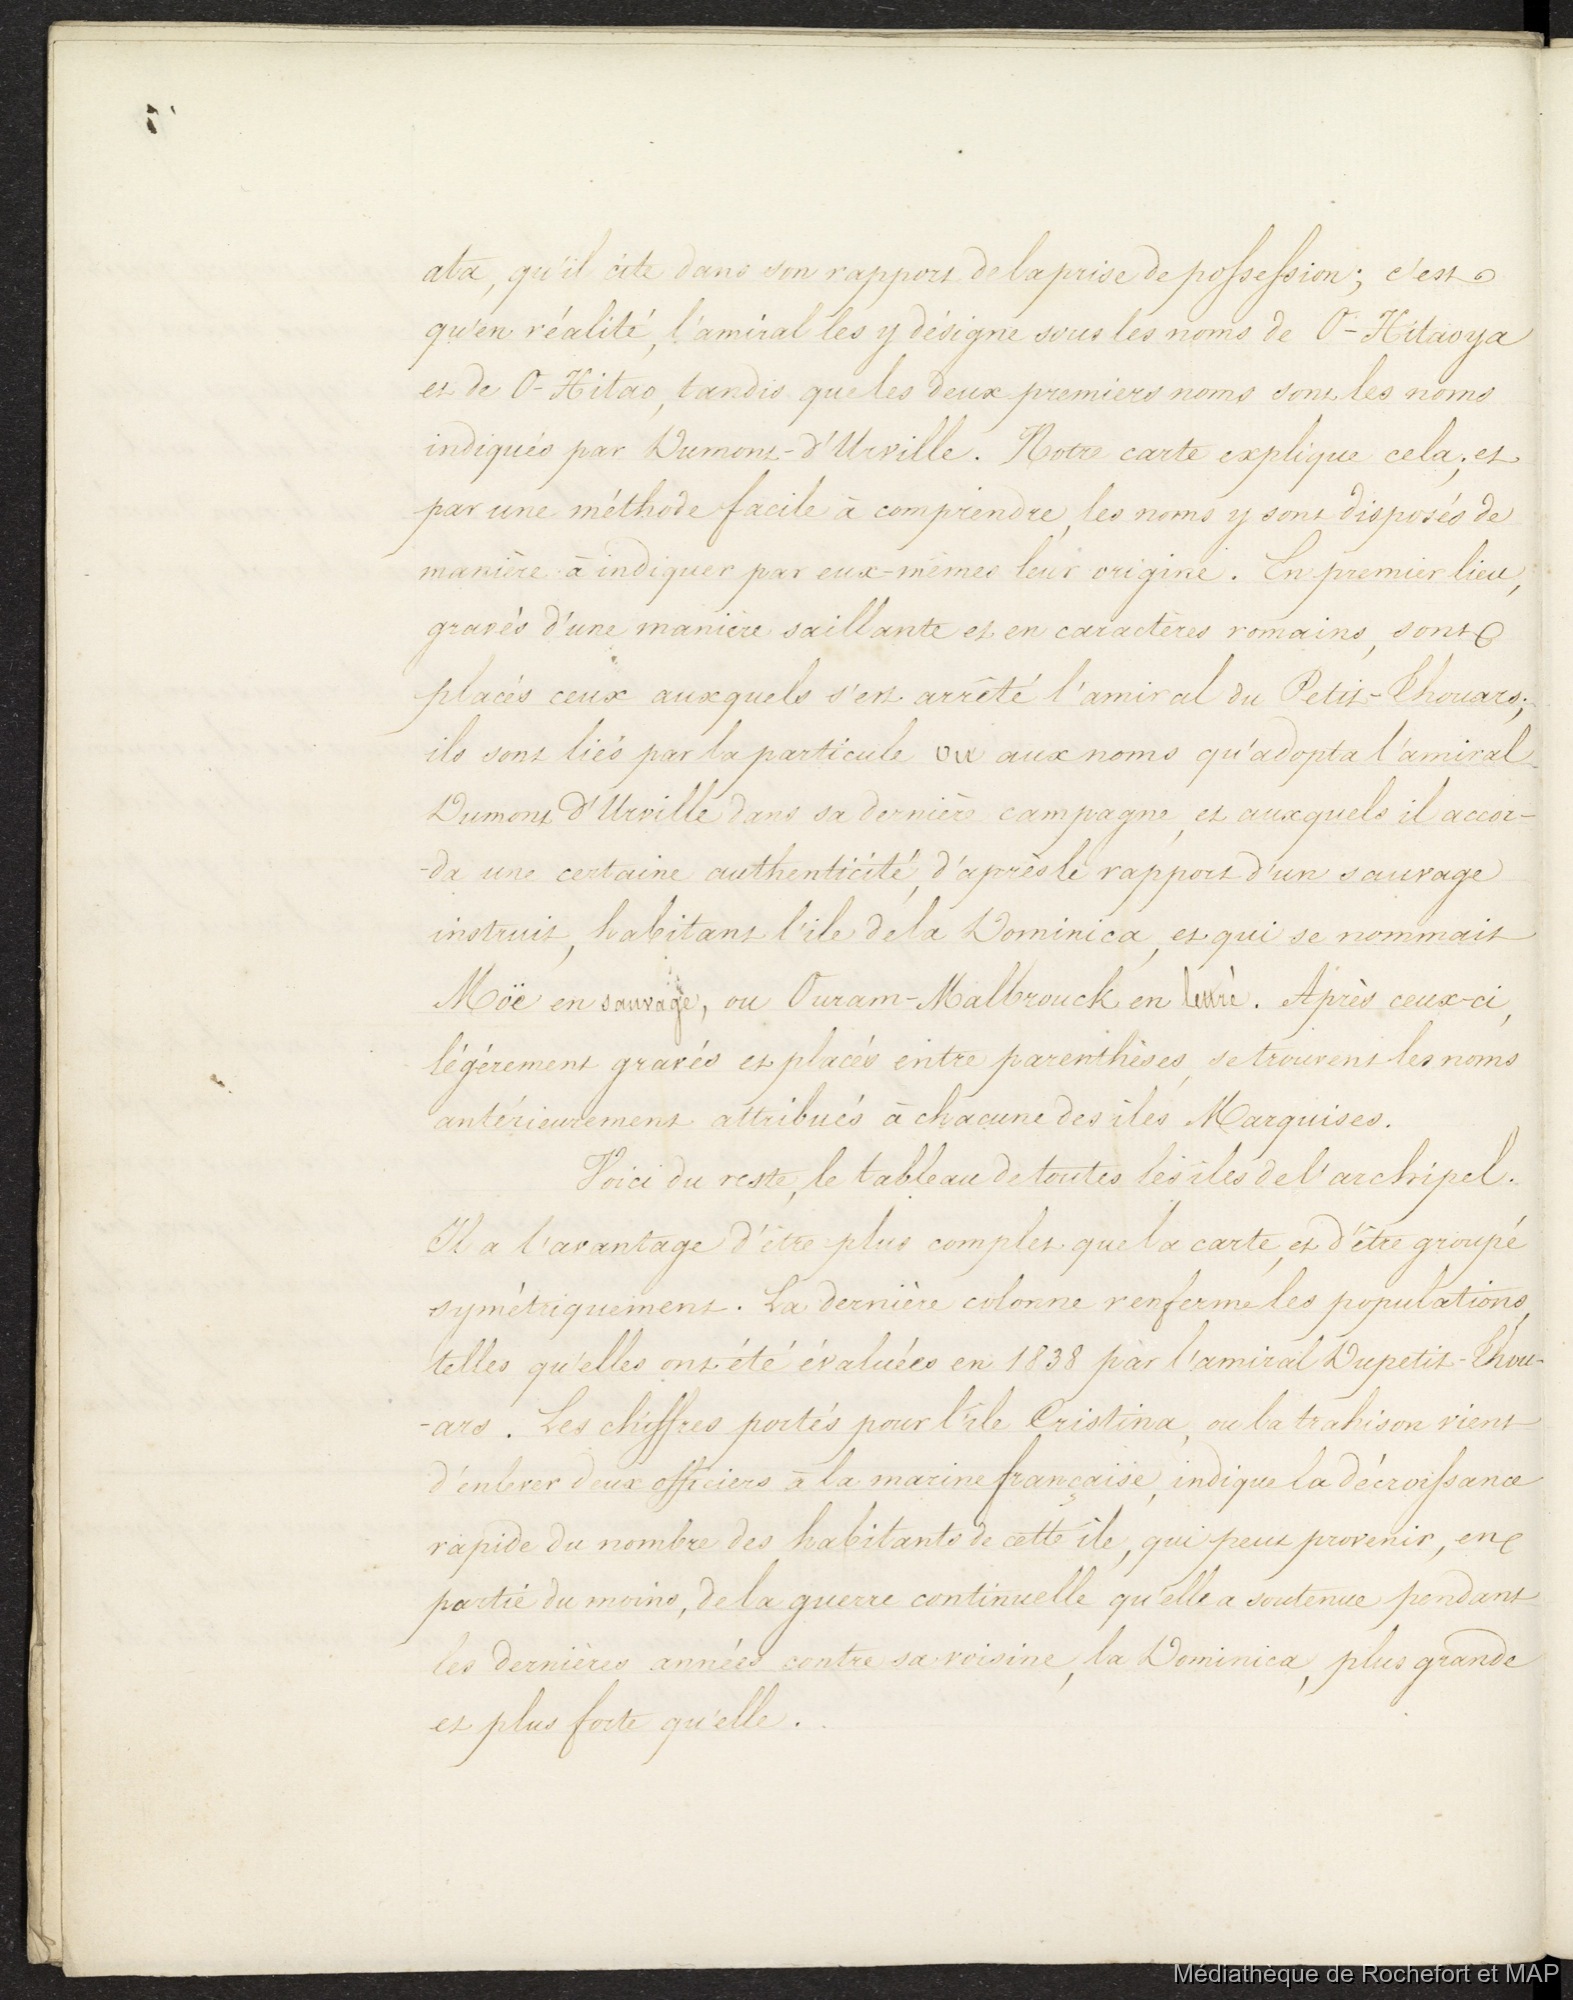 ata, qu'il cite dans son rapport de la prise de possession; c'est
qu'en réalité, l'amiral les y désigne sous les noms de O-Hitaoya
et de O-Hitao, tandis que les deux premiers noms sont les noms
indiqués par Dumont-d'Urville. Notre carte explique cela; et
par une méthode facile à comprendre, les noms y sont disposés de
manière à indiquer par eux-mêmes leur origine. En premier lieu,
gravés d'une manière saillante et en caractères romains, sont
placés ceux auxquels s'est arrêté l'amiral du Petit-Thouars;
ils sont liés par la particule ou aux noms qu'adopta l'amiral
Dumont d'Urville dans sa dernière campagne, et auxquels il accor-
-da une certaine authenticité, d'après le rapport d'un sauvage
instruit, habitant l'ile de la Dominica, et qui se nommait
Moë en sauvage, ou Ouram-Malbrouck en . Après ceux-ci,
légérement gravés et placés entre parenthèses, se trouvent les noms
antérieurement attribués à chacune des îles Marquises.
Voici du reste, le tableau de toutes les îles de l'archipel.
Il a l'avantage d'être plus complet que la carte, et d'être groupé
symétriquement. La dernière colonne renferme les populations,
telles qu'elles ont été évaluées en 1838 par l'amiral Dupetit-Thou-
-ars. Les chiffres portés pour l'île Cristina, ou la trahison vient
d'enlever deux officiers à la marine française, indique la décroissance
rapide du nombre des habitants de cette île, qui peut provenir, en
partie du moins, de la guerre continuelle qu'elle a soutenue pendant
les dernières années contre sa voisine, la Dominica, plus grande
et plus forte qu'elle.
Médiathèque de Rochefort et MAP